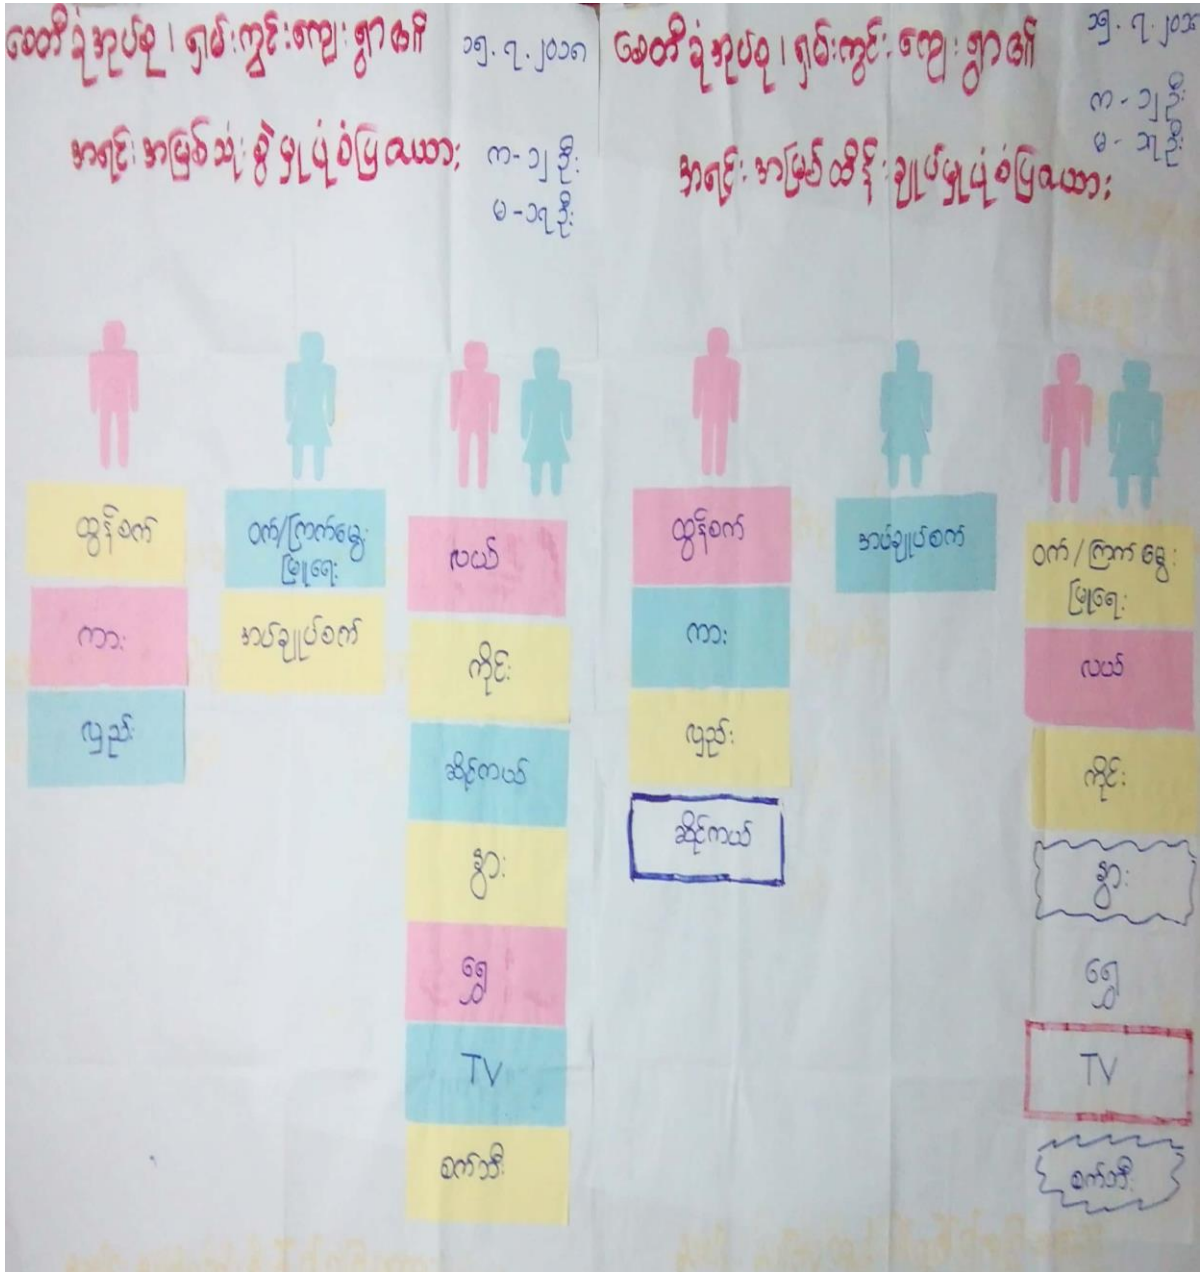 စေတီခုံအုပ်စု၊ ရှမ်းကွင်းကျေးရွာ၏
၁၅.၇.၂၀၁၈
အရင်းအမြစ်သုံးစွဲမှုပုံစံပြဇယား
က-၁၂ဦး
မ-၁၇ဦး
ထွန်စက်
ကား
လှည်း
ဝက်/ကြက်မွေး
မြူရေး
အပ်ချုပ်စက်
လယ်
ကိုင်း
ဆိုင်ကယ်
နွား
ရွှေ
TV
စက်ဘီး
စေတီခုံအုပ်စု၊ ရှမ်းကွင်းကျေးရွာ၏
က-၁၂ဦး
မ-၁၇ဦး
အရင်းအမြစ်ထိန်းချုပ်မှုပုံစံပြဇယား
ထွန်စက်
ကား
လှည်း
ဆိုင်ကယ်
အပ်ချုပ်စက်
ဝက်/ကြက်မွေး
မြူရေး
လယ်
ကိုင်း
နွား
ရွှေ
TV
စက်ဘီး